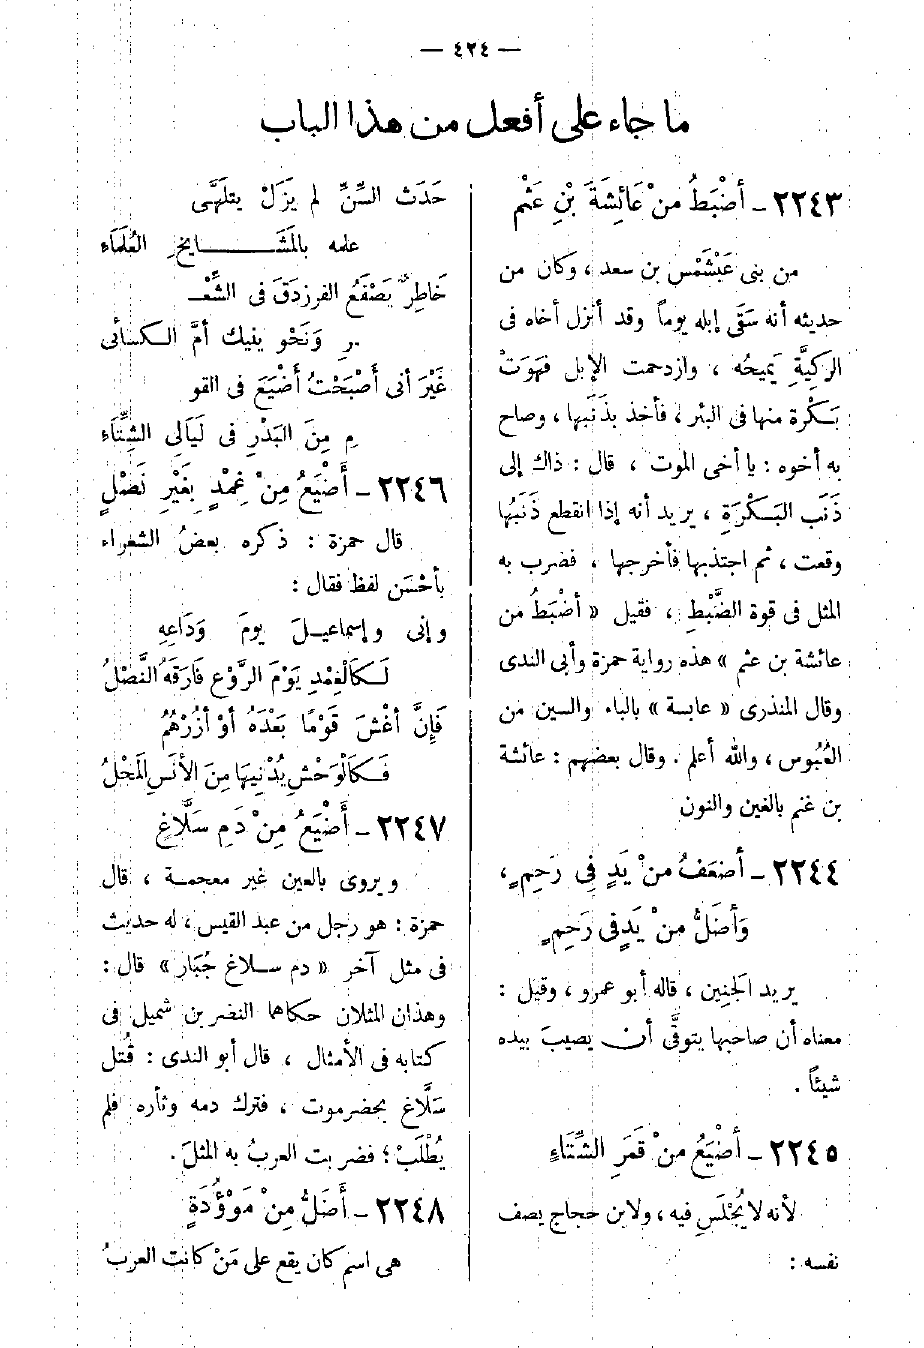 — ٤٢٤ —
ما جاء على أفعل من هذا الباب
٢٢٤٣ - أضْبَطُ منْ عَائِشَةَ بْنِ عَثْم
من بنى عَبْشَمْس بن سعد ، وكان من
حديثه أنه سَقَى إبله يوماً وقد أنزل أخاه فى
الركِيَّةِ يَمِيحُه ، وازدحمت الإبل فهَوَتْ
بَكْرة منها فى البئر ، فأخذ بذَنَبها ، وصاح
به أخوه : يا أخى الموت ، قال : ذاك إلى
ذنَب البَكْرَةِ ، يريد أنه إذا انقطع ذَنَبُها
وقعت ، ثم اجتذبها فأخرجها ، فضرب به
المثل فى قوة الضَّبْطِ ، فقيل « أضْبَطُ من
عائشة بن عثم » هذه رواية حمزة وأبى الندى
وقال المنذرى « عابسة » بالباء والسين من
العُبُوس ، والله أعلم . وقال بعضهم : عائشة
بن غنم بالغين والنون
٢٢٤٤ - أضعَفُ منْ يَدٍ فِى رَحِمٍ ،
وَأضَلُّ منْ يَدٍ فى رَحِمٍ
يريد الجنِين ، قاله أبو عمرو ، وقيل :
معناه أن صاحبها يتوقَّى أن يصيبَ بيده
شيئاً .
٢٢٤٥ - أضْيَعُ منْ قَمَرِ الشِّتَاءِ
لأنه لا يُجْلَسِ فيه ، ولابن حجاج يصف
نفسه :
حَدَث السِّنِّ لم يَزَلْ يتلهَّى
علمه بالمَشَايخِ العُلَمَاءِ
خَاطِرٌ يَصْفَعُ الفرزدَقَ فى الشِّعْـ
ـرِ وَنَحْو ينيك أمَّ الكسائى
غَيْرَ أنى أصْبَحْتُ أضْيَعَ فى القو
مِ مِنَ البَدْرِ فى لَيَالِى الشِّتَاءِ
٢٢٤٦ - أَضْيَعُ مِنْ غِمْدٍ بِغَيْرِ نَصْلٍ
قال حمزة : ذكره بعضُ الشعراء
بأحْسَن لفظ فقال :
وإنى وإسماعيلَ يومَ وَدَاعِهِ
لَكَالْغِمْدِ يَوْمَ الرَّوْع فَارَقَهُ النَّصْلُ
فَإِنَّ أغْشَ قَوْمًا بَعْدَهُ أوْ أزُرْهُمُ
فَكَالْوَحْشِ يُدْنِيهَا مِنَ الأنَسِ المَحْلُ
٢٢٤٧ - أَضْيَعُ مِنْ دَمِ سَلَّاغٍ
ويروى بالعين غير معجمة ، قال
حمزة : هو رجل من عبد القيس ، له حديث
فى مثل آخر « دم سلاغ جُبَار » قال :
وهذان المثلان حكاهما النضر بن شميل فى
كتابه فى الأمثال ، قال أبو الندى : قُتل
سَلَّاغ بحضرموت ، فترك دمه وثأره فلم
يُطْلَبْ ؛ فضربت العربُ به المثلَ .
٢٢٤٨ - أَضَلُّ مِنْ مَوْؤُدَةٍ
هى اسم كان يقع على مَنْ كانت العربُ